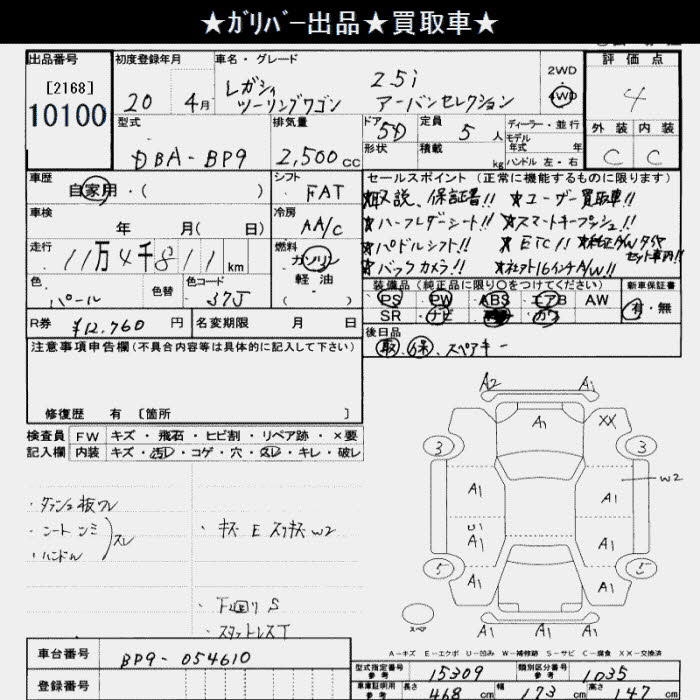 ★ｶﾞﾘﾊﾞｰ出品★買取車★
出品番号
[2168]
10100
初度登録年月
20 4月
車名・グレード
レガシィ 2.5i
ツーリングワゴン アーバンセレクション
2WD
4WD
評価点
4
外装 内装
C C
型式
DBA-BP9
排気量
2,500 cc
ドア 5D
形状
定員 5 人
積載 kg
ディーラー・並行
モデル
年式 年
ハンドル 左・右
車歴
自家用・( )
シフト
FAT
車検
年 月( 日)
冷房
AA/C
走行
11万4千811 km
燃料
ガソリン
軽油
( )
色
パール
色替
色コード
37J
R券 ¥12,760 円
名変期限 月 日
セールスポイント (正常に機能するものに限ります)
★取説、保証書!! ★ユーザー買取車!!
★ハーフレザーシート!! ★スマートキープッシュ!!
★パドルシフト!! ★ETC!! ★純正A/Wタイヤ
セット車内!!
★バックカメラ!! ★社外16インチA/W!!
装備品 (純正品に限り○をつけてください)
PS PW ABS エアB AW
SR ナビ カワ
新車保証書
有・無
後日品
取 保 スペアキー
注意事項申告欄 (不具合内容等は具体的に記入して下さい)
修復歴 有 [箇所 ]
検査員 FW キズ・飛石・ヒビ割・リペア跡・×要
記入欄 内装 キズ・汚レ・コゲ・穴・スレ・キレ・破レ
・ダッシュ板ワレ
・シートシミ
・ハンドル スレ
・キズ E スリキズ W2
・下回り S
・スタットレスT
A2 A1
A1 XX
3 3
A1 A1 W2
U1
A1 A1
5 5
A1 A1
A1 A1 A1
スペア
A－キズ E－エクボ U－凹み W－補修跡 S－サビ C－腐食 XX－交換済
車台番号 BP9-054610
登録番号
型式指定番号
参考
15309
類別区分番号
参考
1035
車庫証明用
参考
長さ 468 cm 幅 173 cm 高さ 147 cm